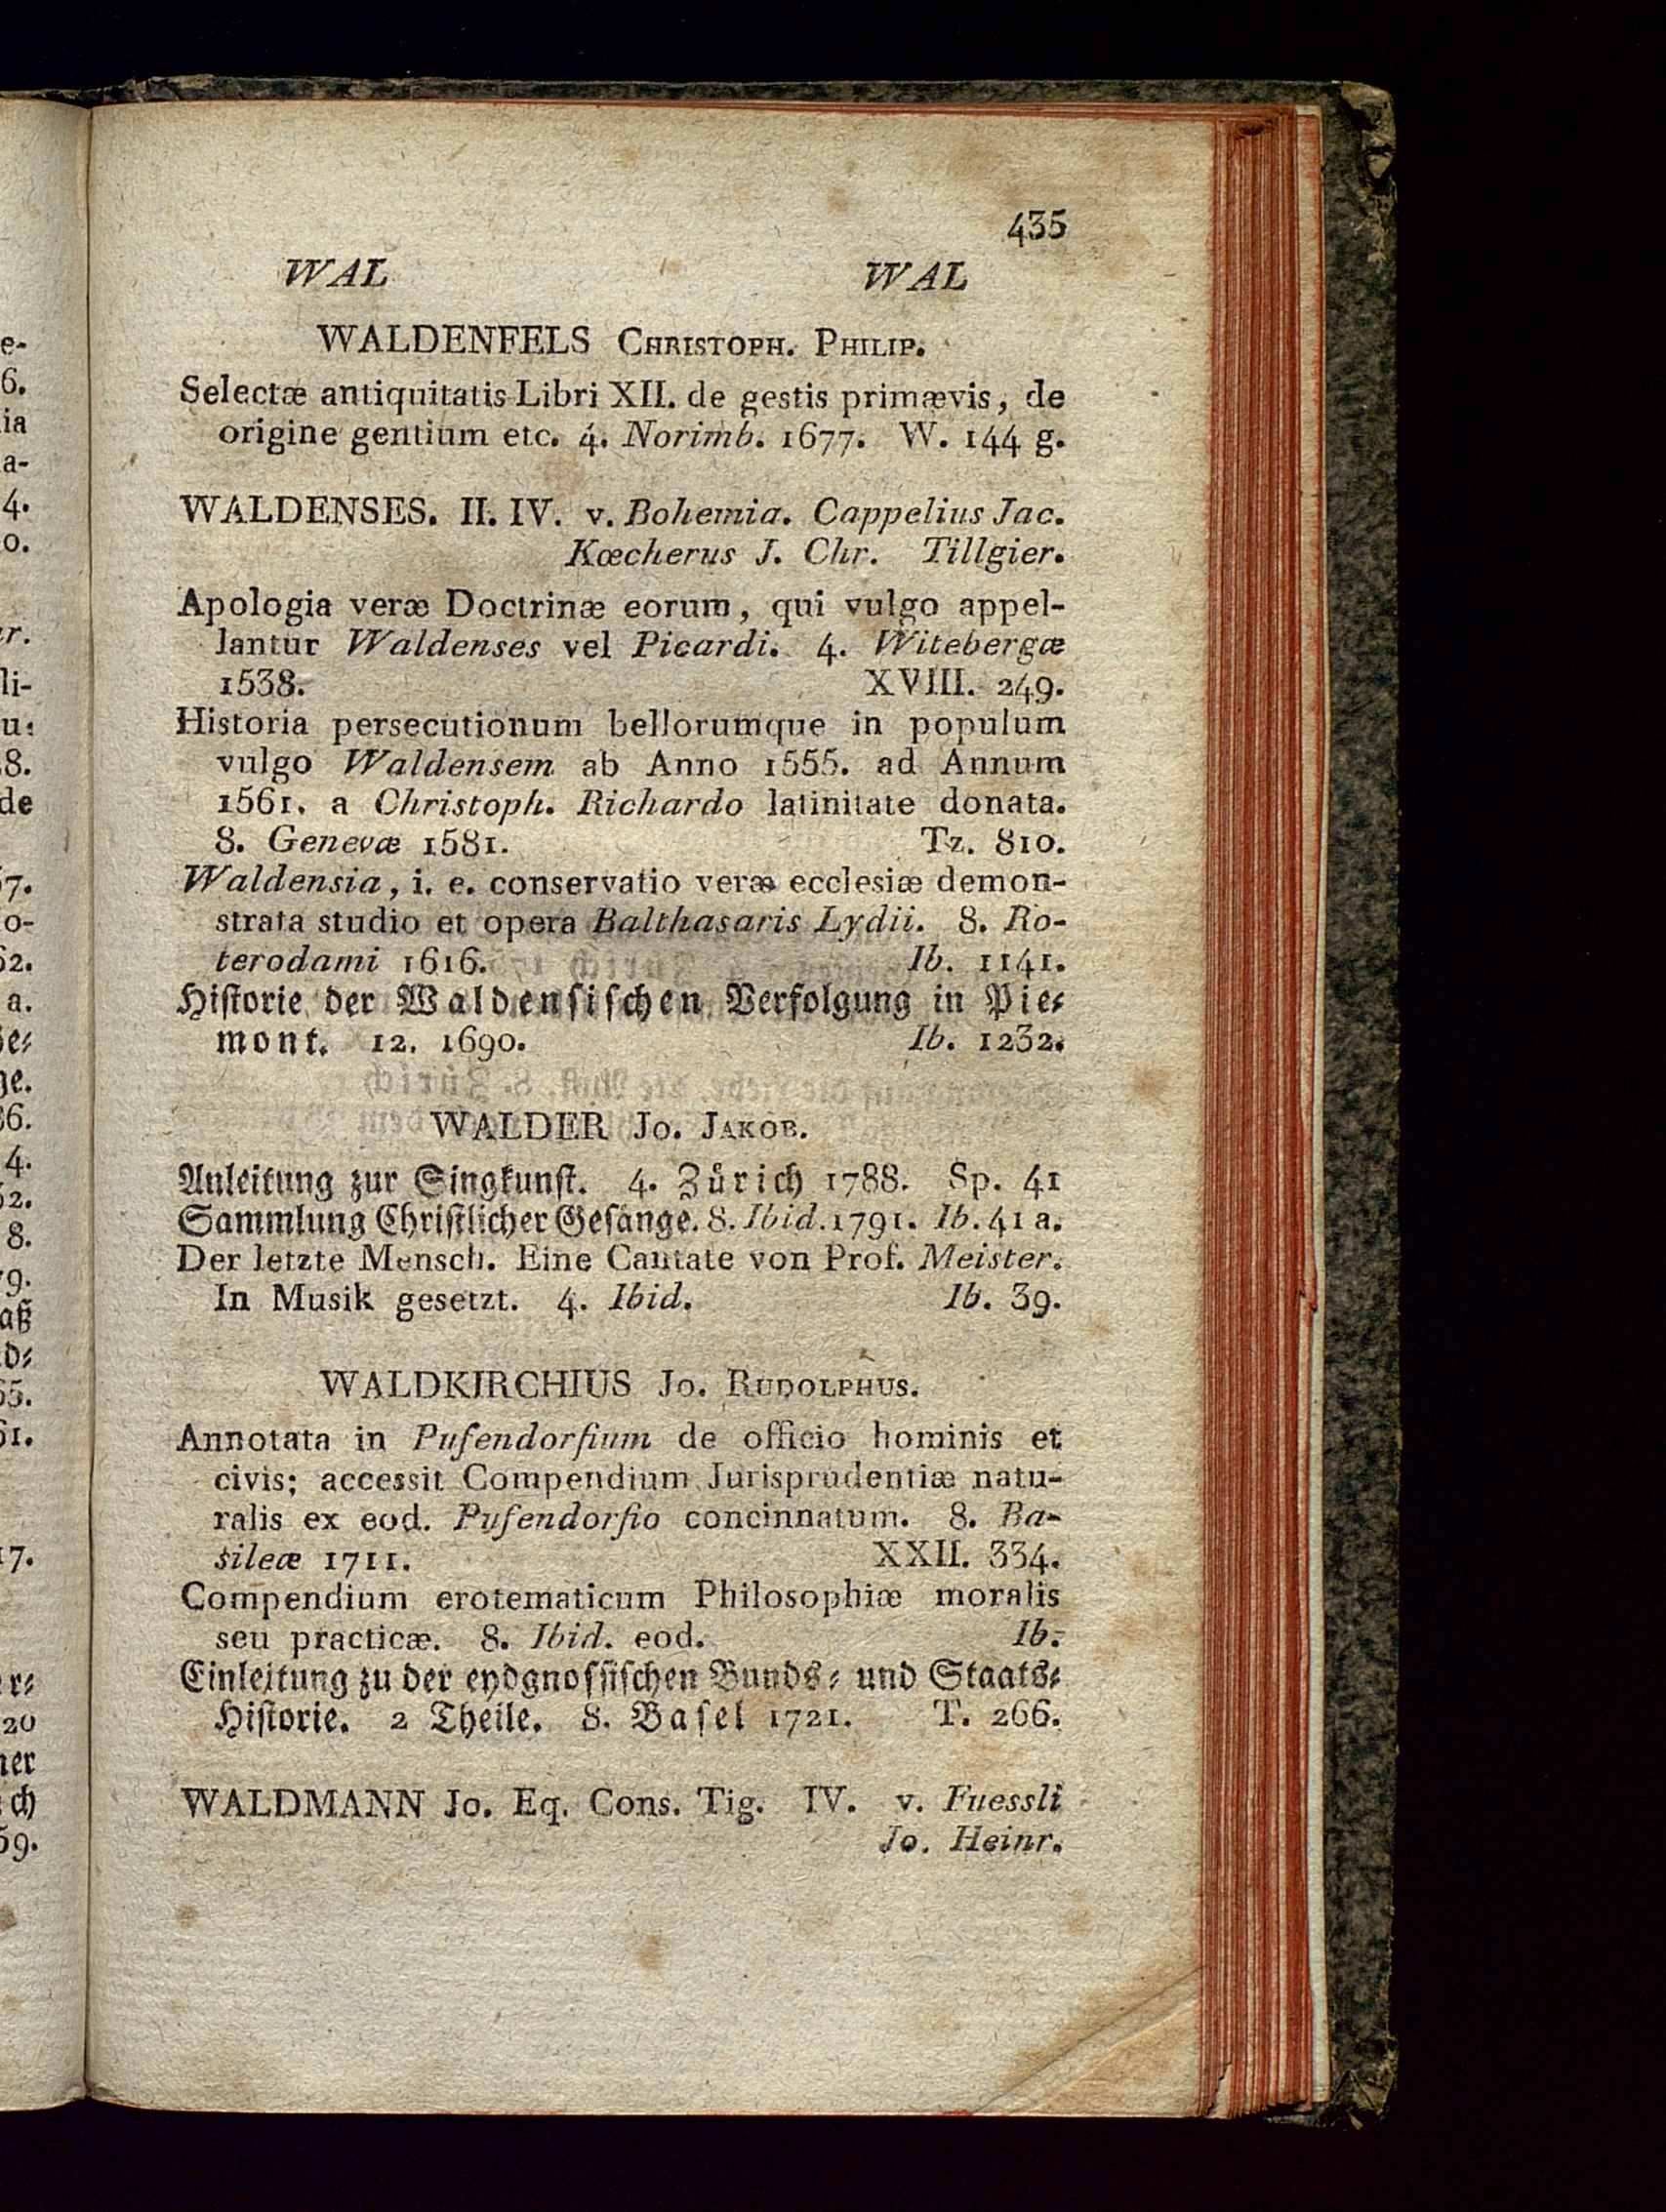 435
WAL WAL
WALDENFELS CHRISTOPH. PHILIP.
Selectæ antiquitatis Libri XII. de gestis primævis, de
origine gentium etc. 4. Norimb. 1677. W. 144 g.
WALDENSES. II. IV. v. Bohemia. Cappelius Jac.
Kœcherus J. Chr. Tillgier.
Apologia veræ Doctrinæ eorum, qui vulgo appel-
lantur Waldenses vel Picardi. 4. Witebergæ
1538. XVIII. 249.
Historia persecutionum bellorumque in populum
vulgo Waldensem ab Anno 1555. ad Annum
1561. a Christoph. Richardo latinitate donata.
8. Genevæ 1581. Tz. 810.
Waldensia, i. e. conservatio veræ ecclesiæ demon-
strata studio et opera Balthasaris Lydii. 8. Ro-
terodami 1616. Ib. 1141.
Historie der Waldensischen Verfolgung in Pie-
mont. 12. 1690. Ib. 1232.
WALDER JO. JAKOB.
Anleitung zur Singkunst. 4. Zürich 1788. Sp. 41
Sammlung Christlicher Gesänge. 8. Ibid. 1791. Ib. 41 a.
Der letzte Mensch. Eine Cantate von Prof. Meister.
In Musik gesetzt. 4. Ibid. Ib. 39.
WALDKIRCHIUS JO. RUDOLPHUS.
Annotata in Pufendorfium de officio hominis et
civis; accessit Compendium Jurisprudentiæ natu-
ralis ex eod. Pufendorfio concinnatum. 8. Ba-
sileæ 1711. XXII. 334.
Compendium erotematicum Philosophiæ moralis
seu practicæ. 8. Ibid. eod. Ib.
Einleitung zu der eydgnossischen Bunds- und Staats-
Historie. 2 Theile. 8. Basel 1721. T. 266.
WALDMANN Jo. Eq. Cons. Tig. IV. v. Fuessli
Jo. Heinr.